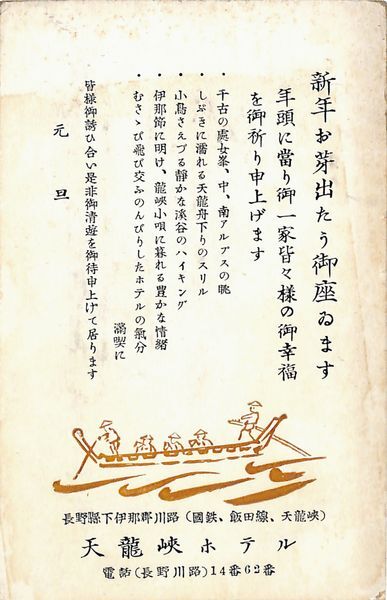 新年お芽出たう御座ゐます
年頭に當り御一家皆々様の御幸福
を御祈り申上げます
・千古の處女峯、中、南アルプスの眺
・しぶきに濡れる天龍舟下りのスリル
・小鳥さえづる静かな溪谷のハイキング
・伊那節に明け、龍峽小唄に暮れる豊かな情緒
・むさゝび飛び交ふのんびりしたホテルの氣分
満喫に
皆様御誘ひ合い是非御清遊を御待申上げて居ります
元旦
長野縣下伊那郡川路(國鉄、飯田線、天龍峽)
天龍峽ホテル
電話(長野川路)14番62番